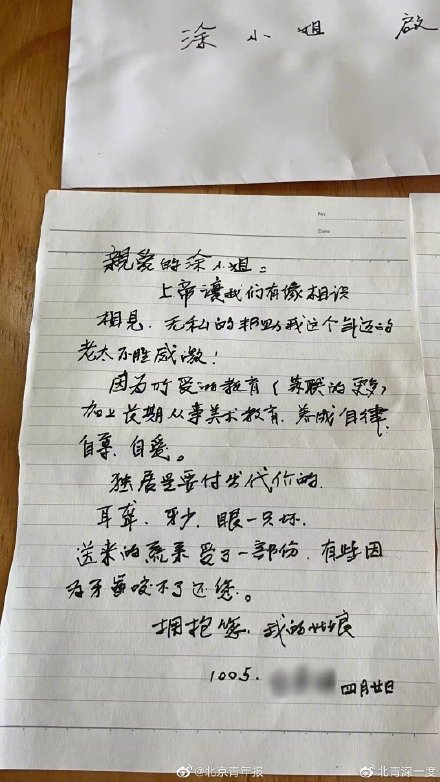 涂小姐 启
No.
Date
親爱的涂小姐：
上帝讓我们有缘相识
相見．无私的帮助我这个年迈的
老太不胜感激！
因为所受的教育（苏联的更多）
加上长期从事美术教育．养成自律．
自尊．自爱。
独居是要付出代价的．
耳聋．牙少．眼一只坏．
送来的蔬菜受了一部份．有些因
为牙齿咬不了还您。
拥抱您．我的姑娘
1005．
四月廿日
@北京青年报
北青深一度